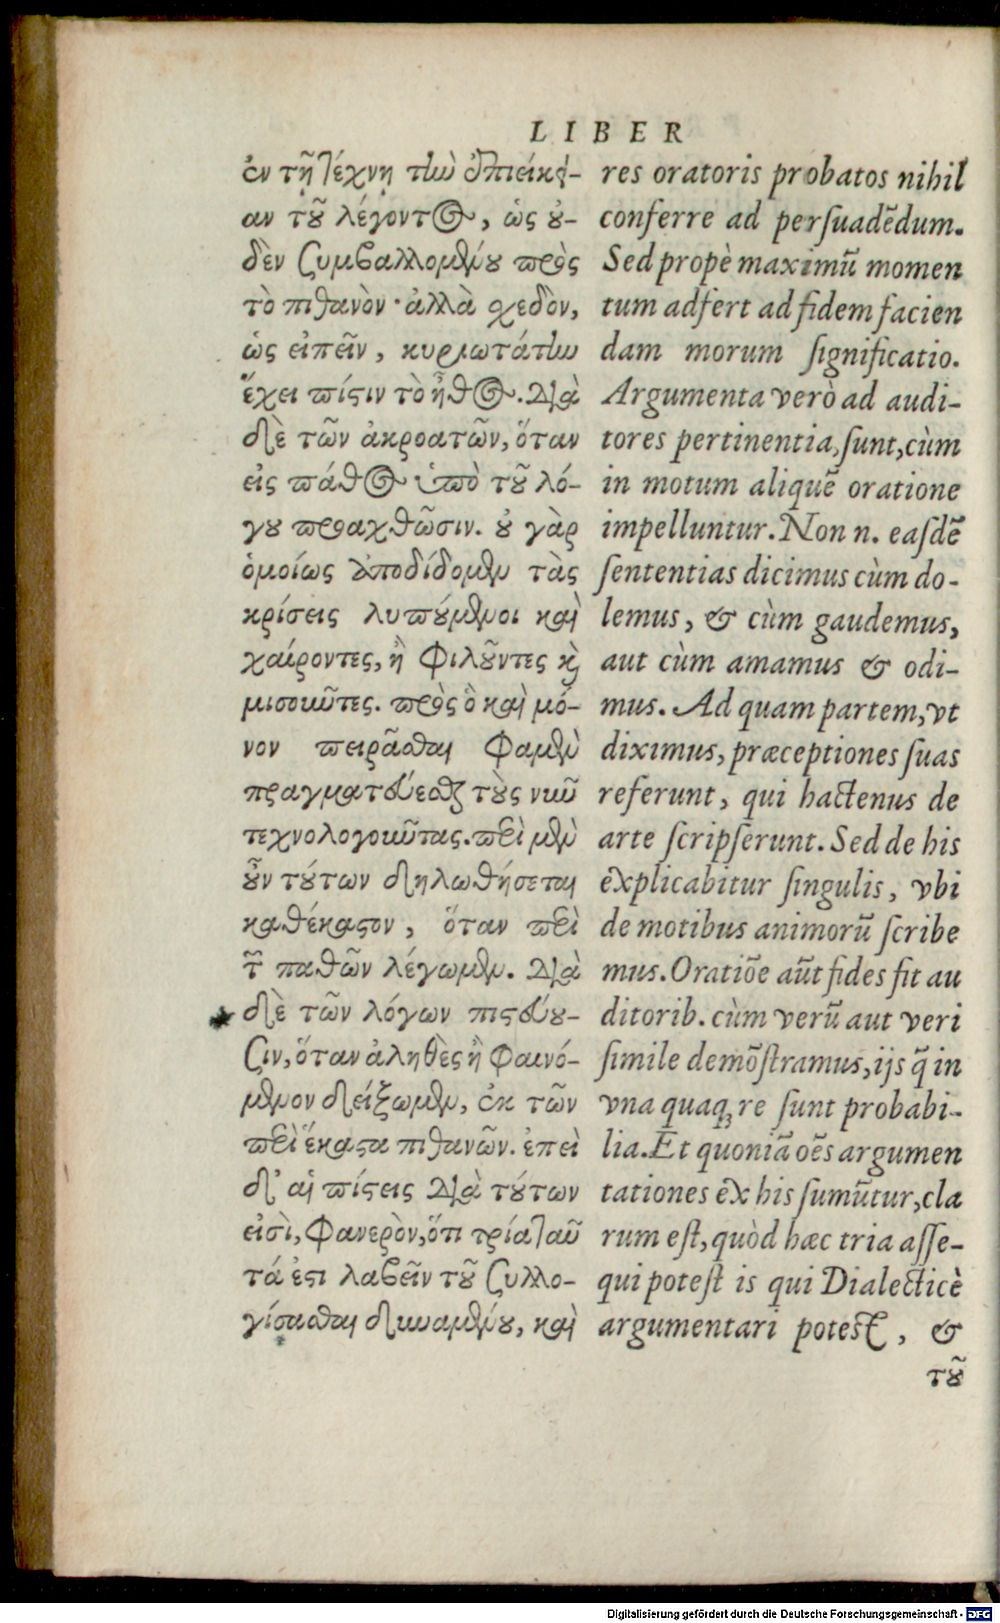 LIBER
ἐν τῇ τέχνῃ τὴν ἐπιείκει-
αν τοῦ λέγοντος, ὡς οὐ-
δὲν συμβαλλομένου πρὸς
τὸ πιθανὸν· ἀλλὰ σχεδὸν,
ὡς εἰπεῖν, κυριωτάτην
ἔχει πίστιν τὸ ἦθος. Διὰ
δὲ τῶν ἀκροατῶν, ὅταν
εἰς πάθος ὑπὸ τοῦ λό-
γου προαχθῶσιν. οὐ γὰρ
ὁμοίως ἀποδίδομεν τὰς
κρίσεις λυπούμενοι καὶ
χαίροντες, ἢ φιλοῦντες καὶ
μισοῦντες. πρὸς ὃ καὶ μό-
νον πειρᾶσθαι φαμὲν
πραγματεύεσθαι τοὺς νῦν
τεχνολογοῦντας. περὶ μὲν
οὖν τούτων δηλωθήσεται
καθέκαστον, ὅταν περὶ
τῶν παθῶν λέγωμεν. Διὰ
δὲ τῶν λόγων πιστεύου-
σιν, ὅταν ἀληθὲς ἢ φαινό-
μενον δείξωμεν, ἐκ τῶν
περὶ ἕκαστα πιθανῶν. ἐπεὶ
δ' αἱ πίστεις διὰ τούτων
εἰσὶ, φανερὸν, ὅτι τρία ταῦ
τά ἐστι λαβεῖν τοῦ συλλο-
γίσασθαι δυναμένου, καὶ
res oratoris probatos nihil
conferre ad persuadēdum.
Sed propè maximū momen
tum adfert ad fidem facien
dam morum significatio.
Argumenta verò ad audi-
tores pertinentia, sunt, cùm
in motum aliquē oratione
impelluntur. Non n. easdē
sententias dicimus cùm do-
lemus, & cùm gaudemus,
aut cùm amamus & odi-
mus. Ad quam partem, vt
diximus, præceptiones suas
referunt, qui hactenus de
arte scripserunt. Sed de his
explicabitur singulis, vbi
de motibus animorū scribe
mus. Oratiōe aūt fides fit au
ditorib. cùm verū aut veri
simile demōstramus, ijs q̄ in
vna quaq; re sunt probabi-
lia. Et quoniā oēs argumen
tationes ex his sumūtur, cla
rum est, quòd hæc tria asse-
qui potest is qui Dialecticè
argumentari potest, &
τοῦ
Digitalisierung gefördert durch die Deutsche Forschungsgemeinschaft - DFG